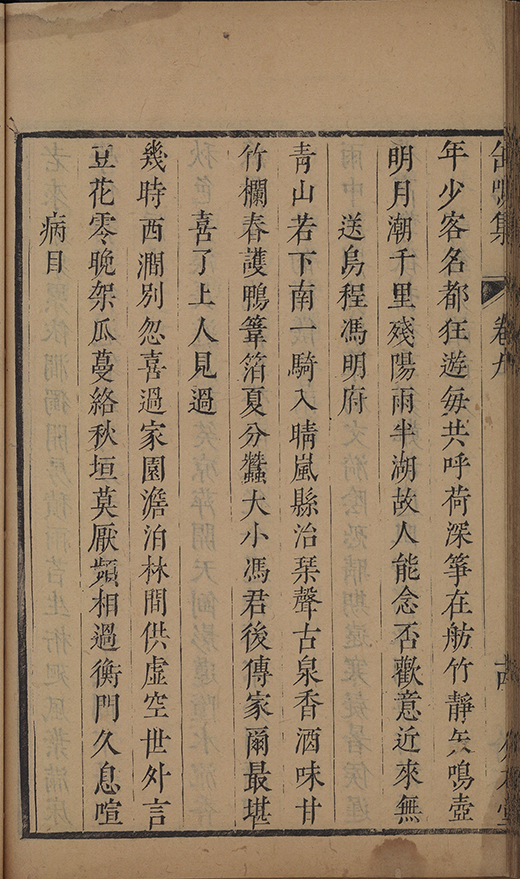 缶鳴集
卷九
年少客名都狂遊每共呼荷深箏在舫竹靜矢鳴壺
明月潮千里殘陽雨半湖故人能念否歡意近來無
送烏程馮明府
靑山若下南一騎入晴嵐縣治琹聲古泉香酒味甘
竹欄春護鴨葦箔夏分蠶大小馮君後傳家爾最堪
喜了上人見過
幾時西澗別忽喜過家園澹泊林間供虛空世外言
豆花零晚架瓜蔓絡秋垣莫厭頻相過衡門久息喧
病目